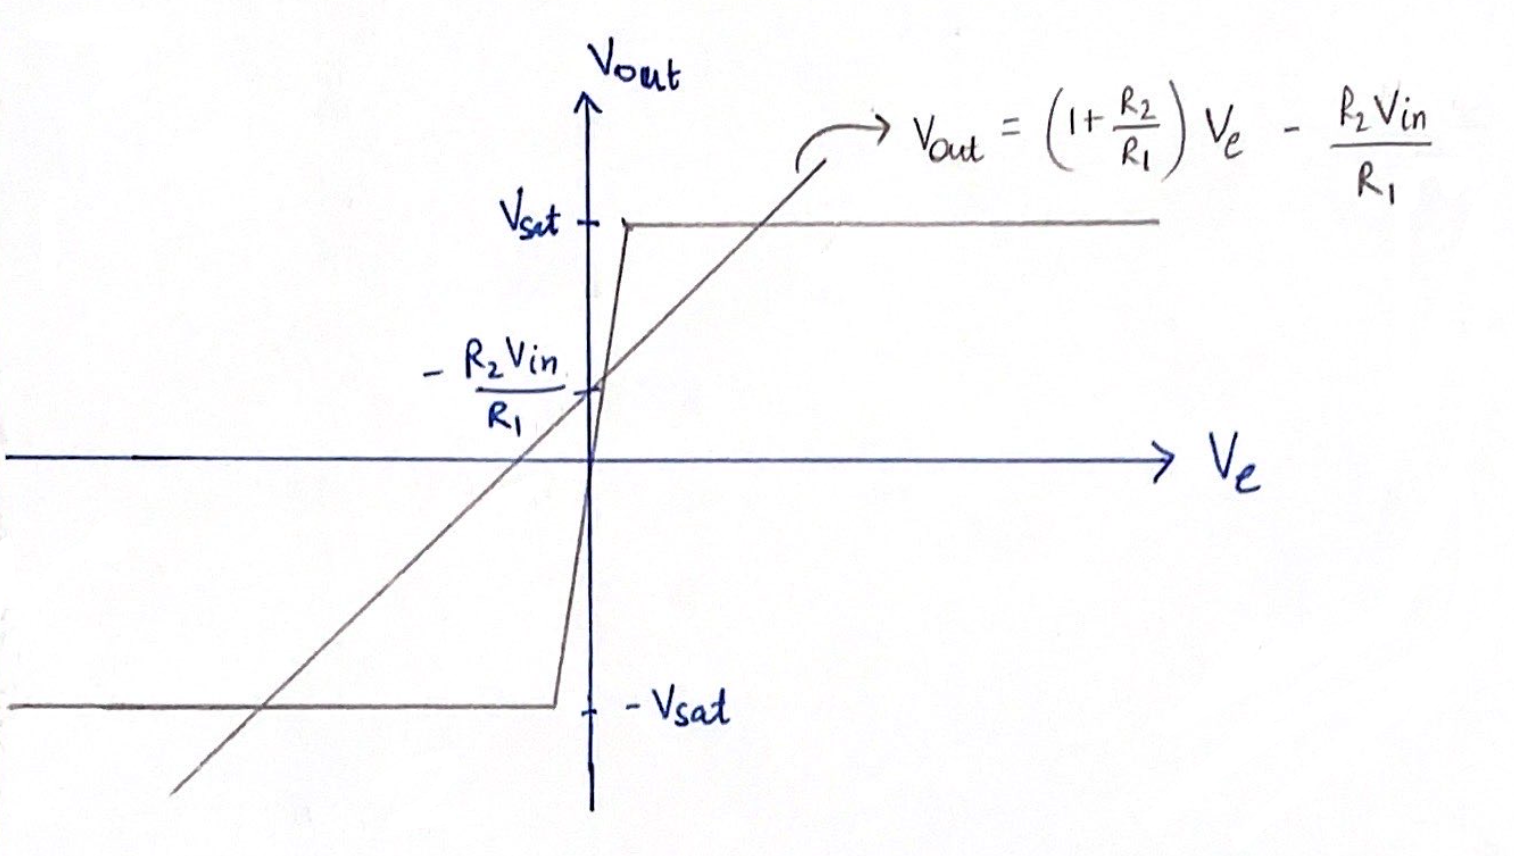 Vout
Vout = (1 + R2/R1) Ve - R2Vin/R1
Vsat
- R2Vin/R1
Ve
- Vsat